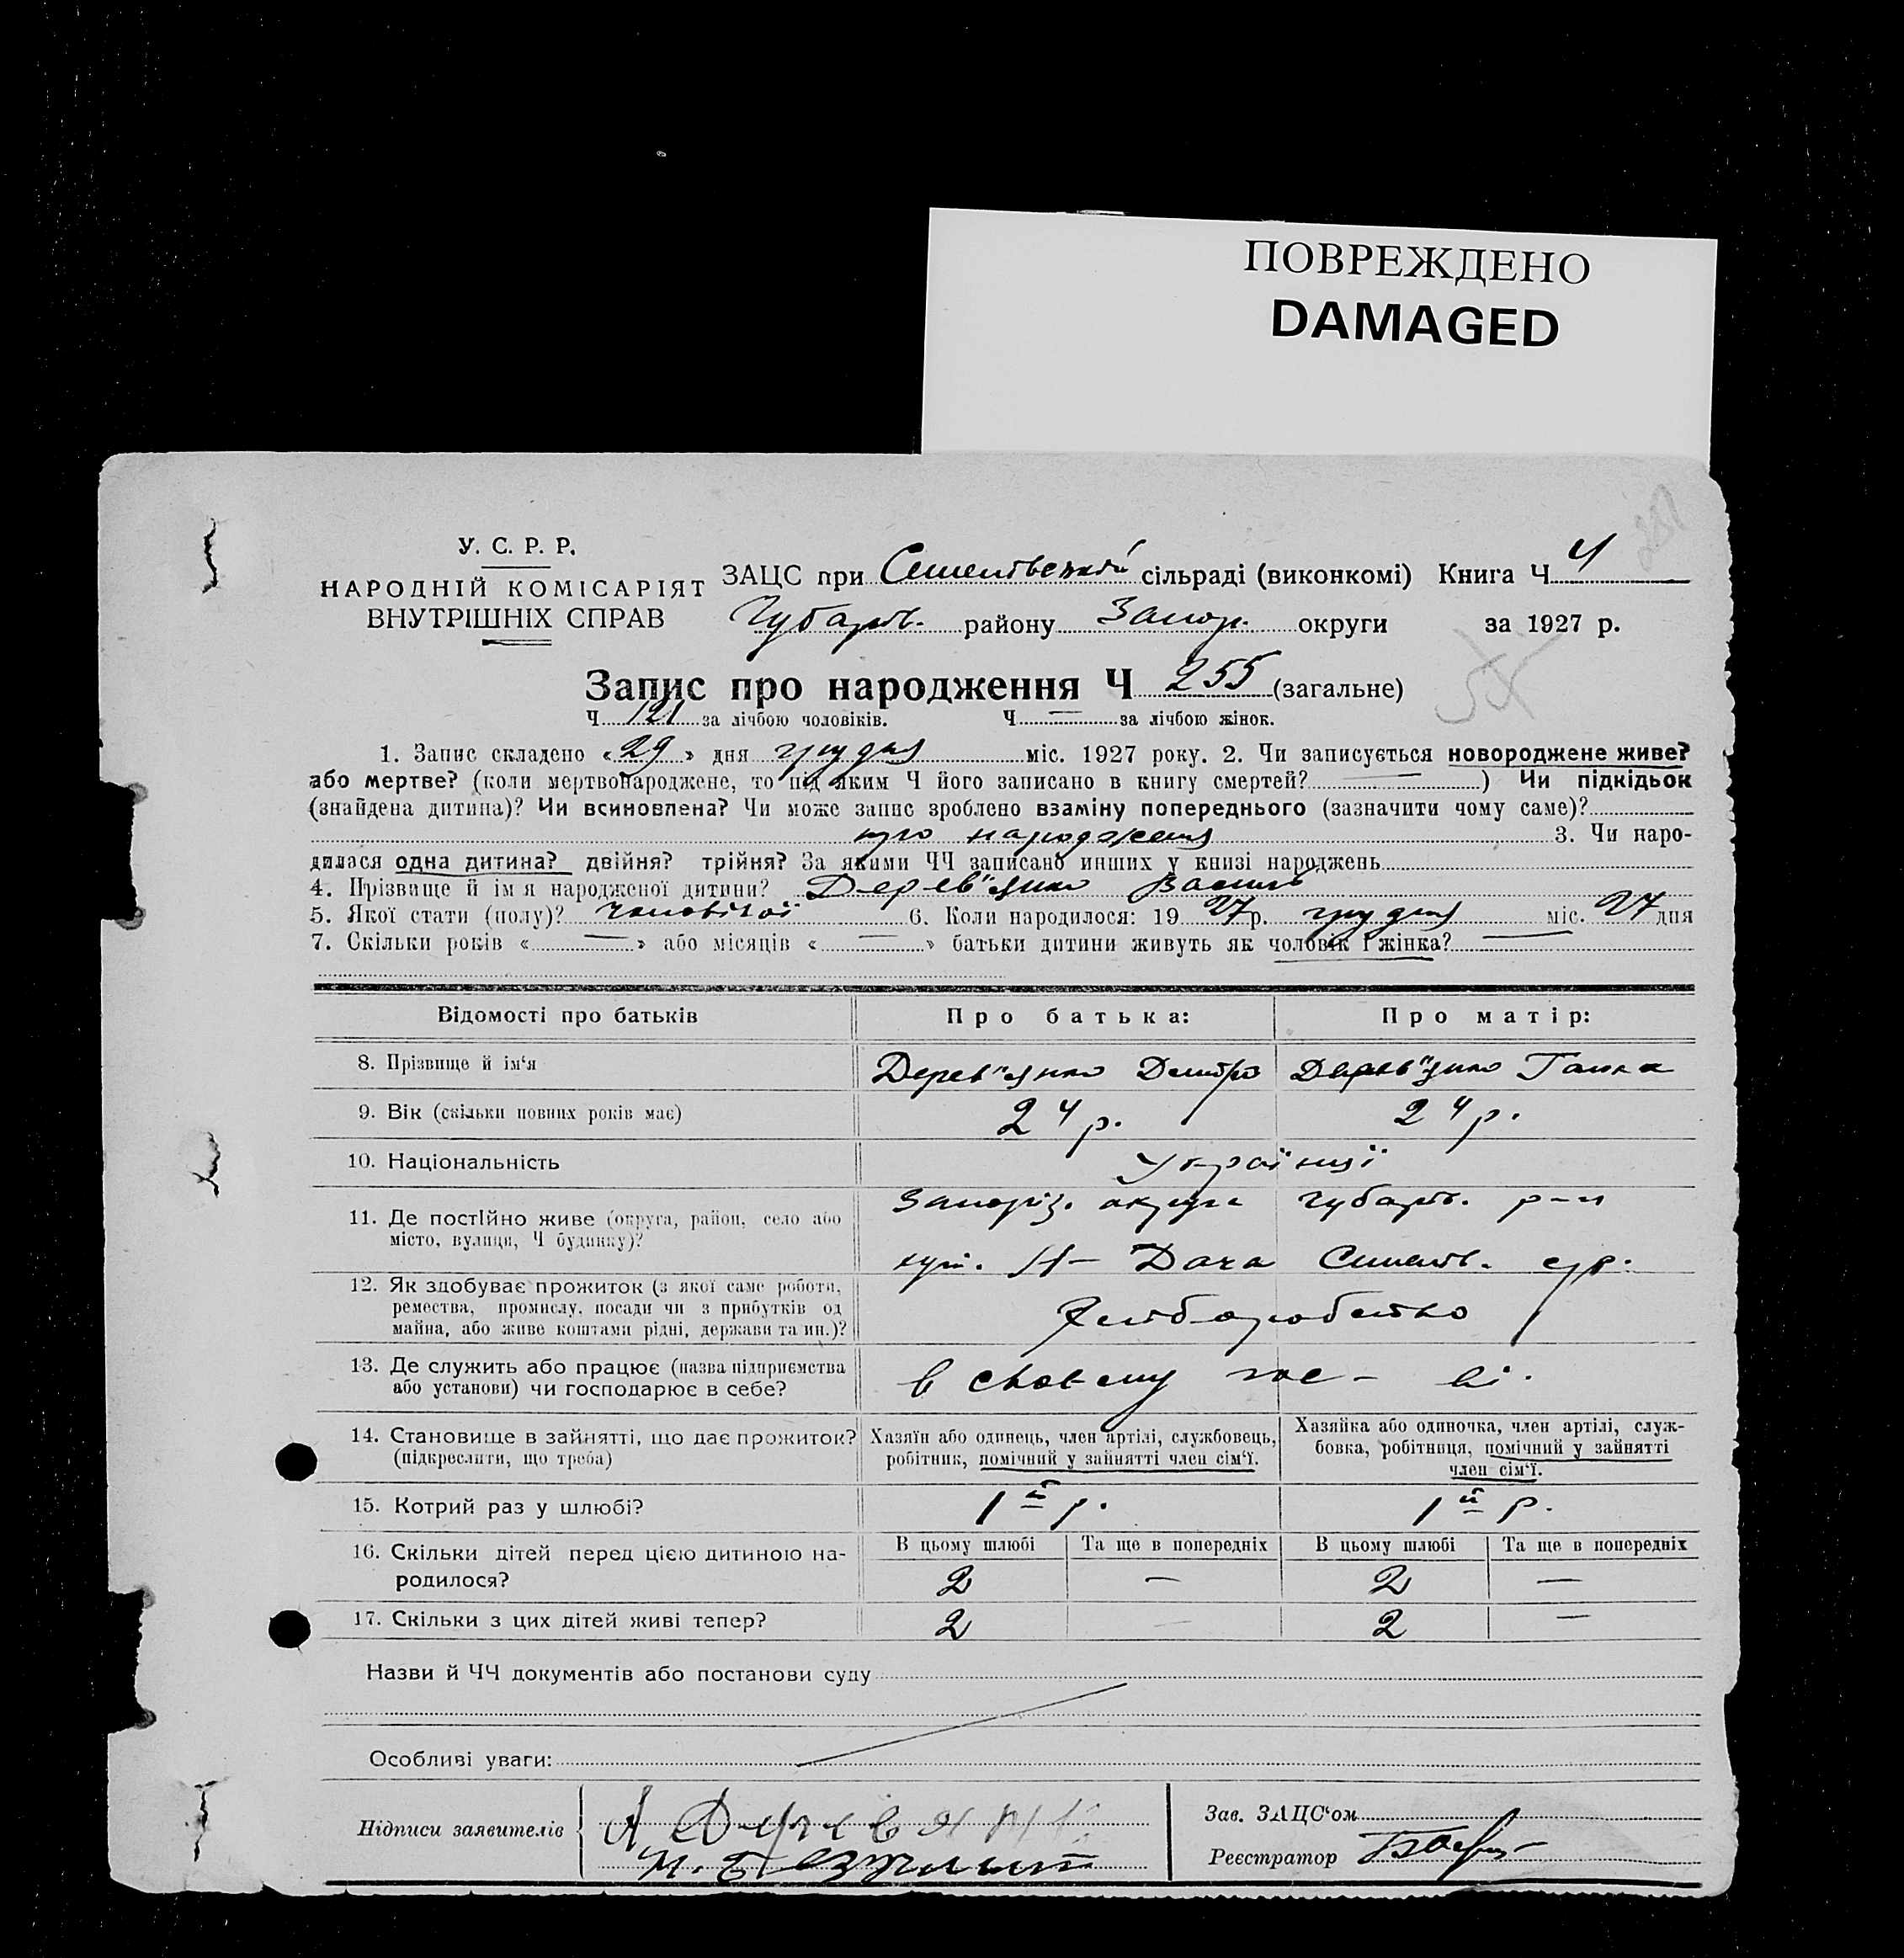 ПОВРЕЖДЕНО
DAMAGED
У. С. Р. Р.
НАРОДНІЙ КОМІСАРІЯТ
ВНУТРІШНІХ СПРАВ
ЗАЦС при сільраді (виконкомі) Книга Ч 4
Чубарів. району Запор. округи за 1927 р.
Запис про народження Ч 255 (загальне)
Ч 121 за лічбою чоловіків. Ч — за лічбою жінок.
1. Запис складено «29» дня грудня міс. 1927 року. 2. Чи записується новороджене живе?
або мертве? (коли мертвонароджене, то під яким Ч його записано в книгу смертей? —) Чи підкідьок
(знайдена дитина)? Чи всиновлена? Чи може запис зроблено взаміну попереднього (зазначити чому саме)?
про народження 3. Чи наро-
дилася одна дитина? двійня? трійня? За якими ЧЧ записано инших у книзі народжень
4. Прізвище й ім я народженої дитини? Дерев"янко Василь
5. Якої стати (полу)? чоловічої 6. Коли народилося: 1927 р. грудня міс. 27 дня
7. Скільки років «—» або місяців «—» батьки дитини живуть як чоловік і жінка? —
Відомості про батьків Про батька: Про матір:
8. Прізвище й ім‘я Дерев"янко Дмитро Дерев"янко Ганна
9. Вік (скільки повних років має) 24 р. 24 р.
10. Національність Українці
11. Де постійно живе (округа, район, село або Запоріз. округа Чубарів. р-н
місто, вулиця, Ч будинку)? хут. Н- Дача с/р.
12. Як здобуває прожиток (з якої саме роботи,
ремества, промислу, посади чи з прибутків од Хліборобство
майна, або живе коштами рідні, держави та ин.)?
13. Де служить або працює (назва підприємства в своєму гос-ві.
або установи) чи господарює в себе?
14. Становище в зайнятті, що дає прожиток? Хазяїн або одинець, член артілі, службовець, Хазяйка або одиночка, член артілі, служ-
(підкреслити, що треба) робітник, помічний у зайнятті член сім‘ї. бовка, робітниця, помічний у зайнятті
член сім‘ї.
15. Котрий раз у шлюбі? 1й р. 1й р.
16. Скільки дітей перед цією дитиною на- В цьому шлюбі Та ще в попередніх В цьому шлюбі Та ще в попередніх
родилося? 2 — 2 —
17. Скільки з цих дітей живі тепер? 2 — 2 —
Назви й ЧЧ документів або постанови суду
Особливі уваги:
Підписи заявителів Зав. ЗАЦС‘ом
Реєстратор